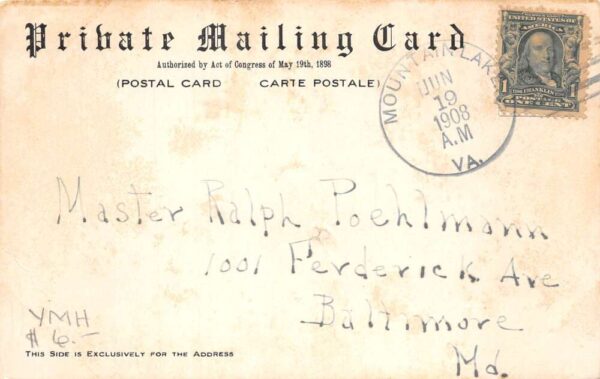 Private Mailing Card
Authorized by Act of Congress of May 19th, 1898
(POSTAL CARD CARTE POSTALE)
MOUNTAIN LAKE
JUN
19
1908
A.M
VA.
UNITED STATES OF
AMERICA
FRANKLIN
1 POSTAGE 1
ONE CENT
Master Ralph Poehlmann
1001 Ferderick Ave
Baltimore
Md.
YMH
$ 6.-
THIS SIDE IS EXCLUSIVELY FOR THE ADDRESS